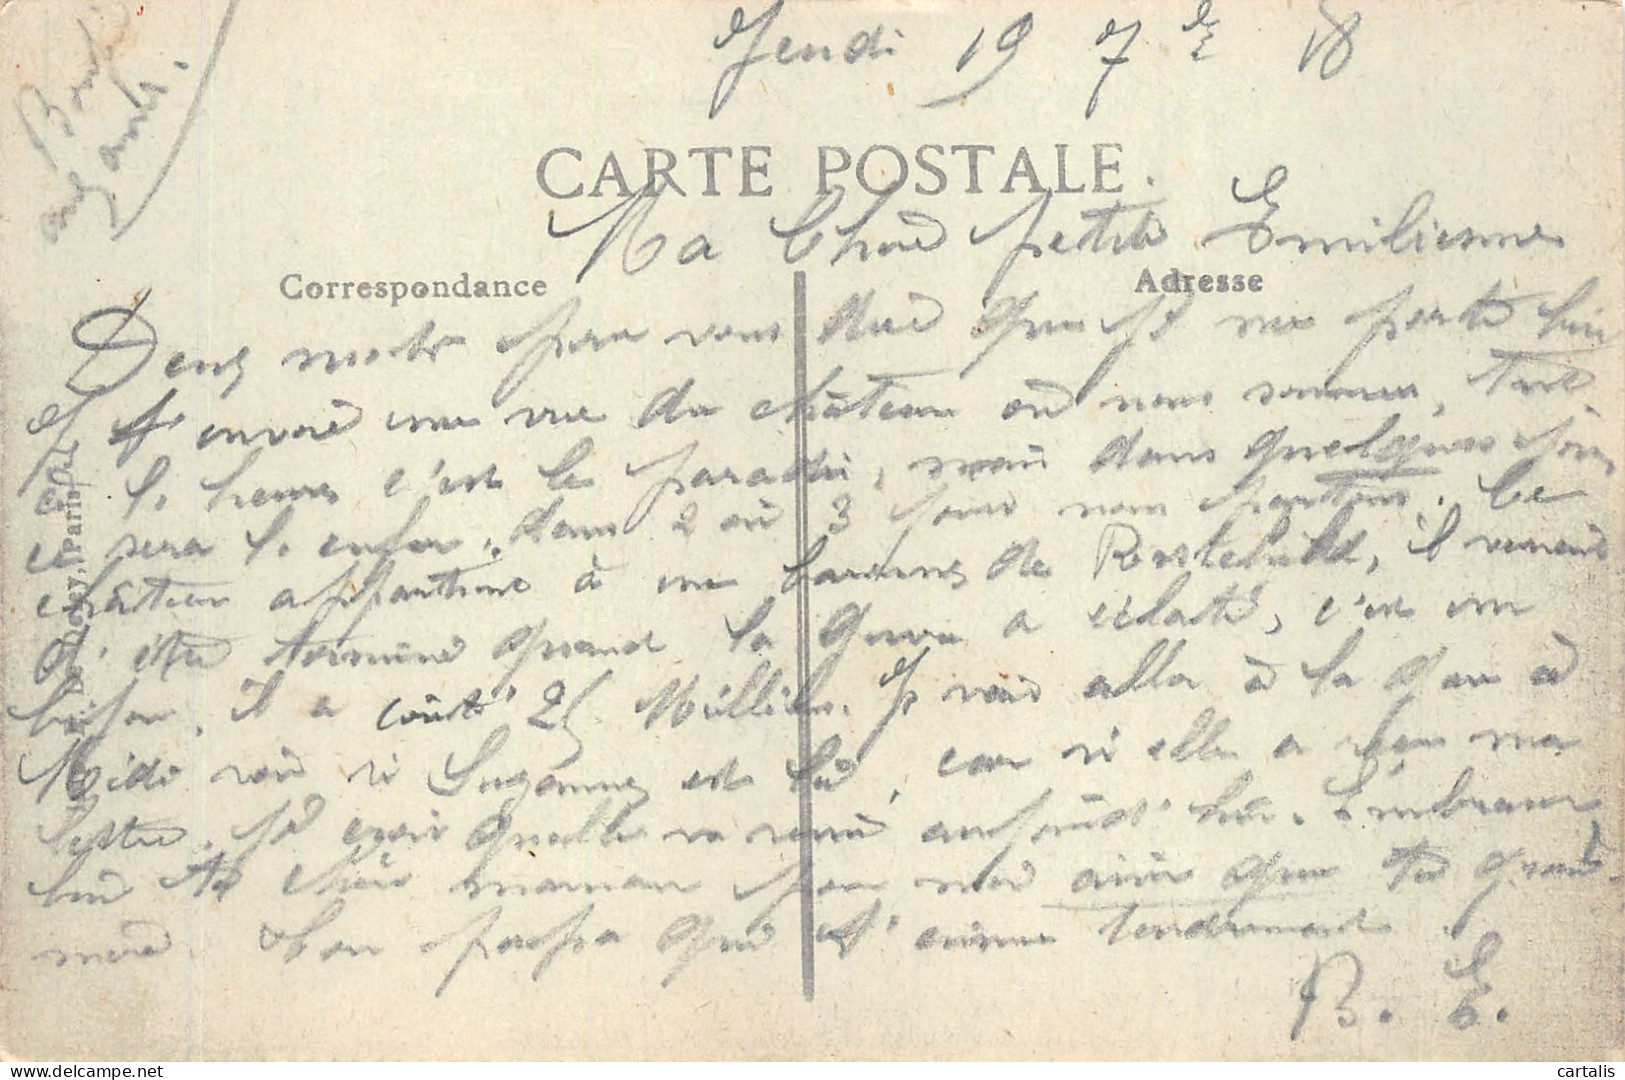 Jeudi 19 7bre 18
CARTE POSTALE.
Ma Chère petite Emilienne
Correspondance
Adresse
Deux mots pour vous dire que je me porte bien
Je t'envoie une vue du château où nous sommes, tout
à l'heure c'est le paradis, mais dans quelques jours
ce sera l'enfer, dans 2 où 3 jours nous partons. Ce
château appartient à un baron de Rostchild, il venait
d'être terminé quand la guerre a éclaté, c'est un
bijou, il a coûté 25 Millions. Je vais aller à la gare à
Midi voir si Suzanne est là, car si elle a reçu ma
lettre, je crois quelle va venir aujourd'hui. Embrasse
bien ta chère maman pour moi ainsi que ta grand
mère. Ton papa qui t'aime tendrement
B. E.
Paris
cartalis